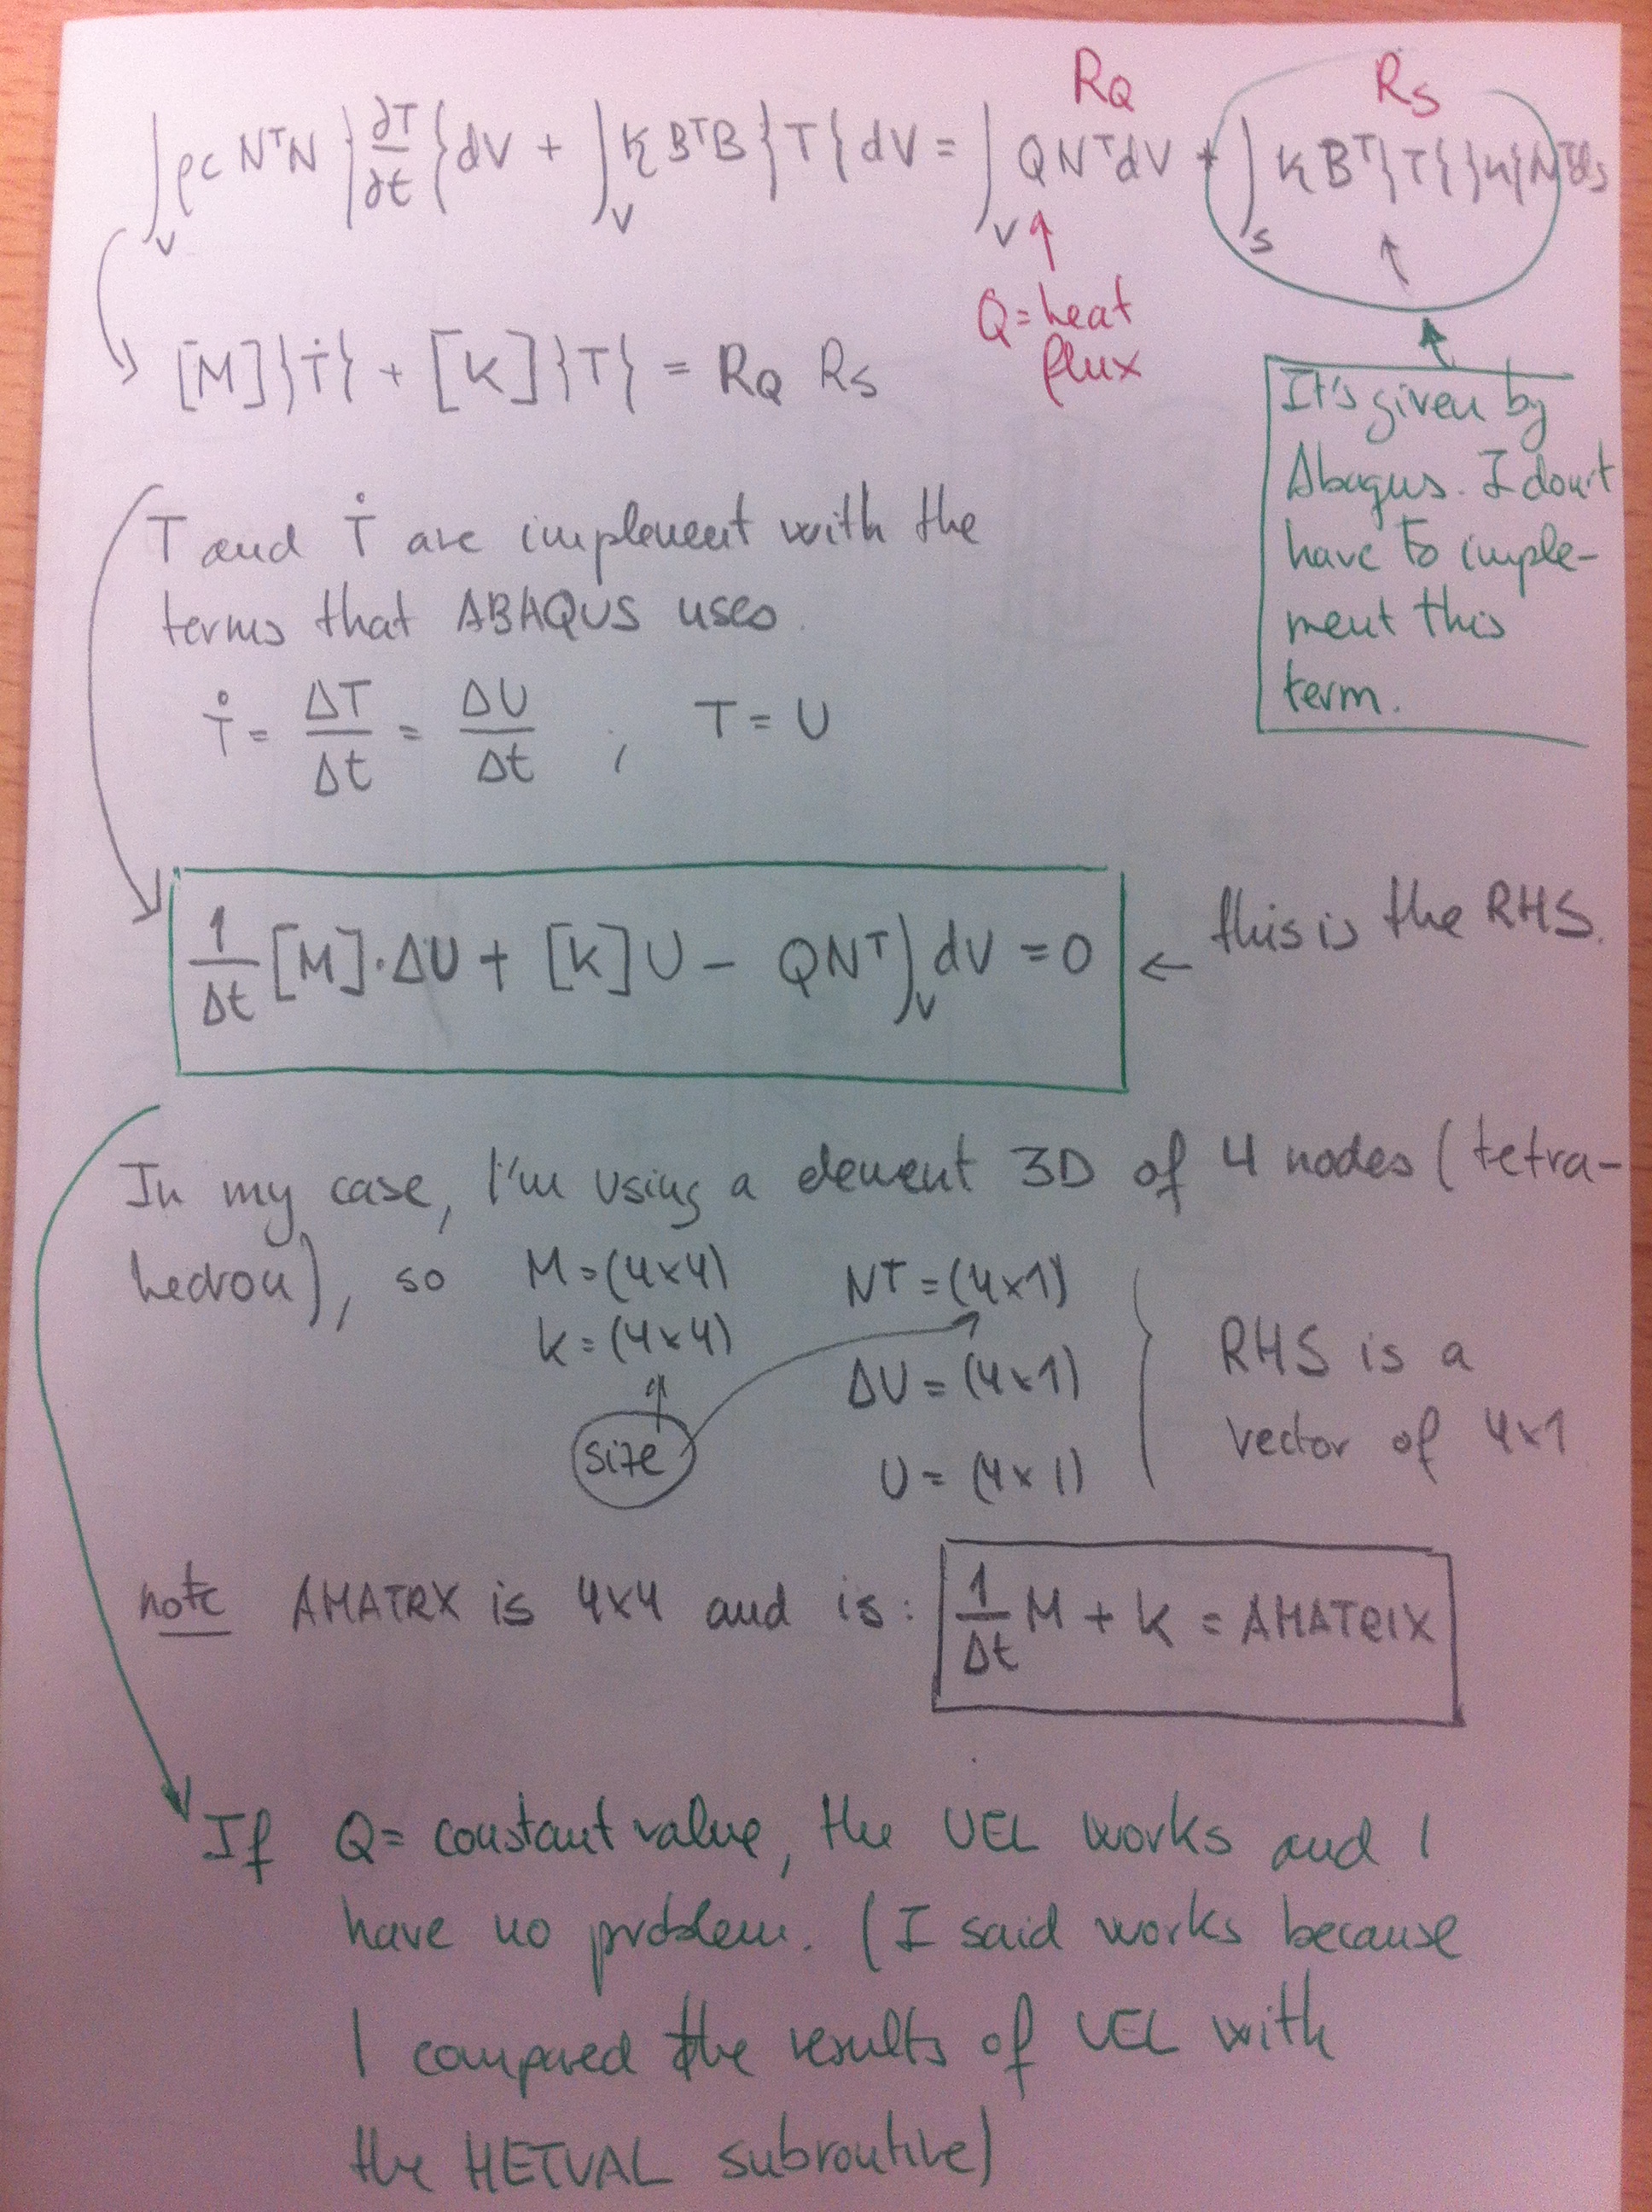 R_Q R_S
∫_V ρc NᵀN }∂T/∂t{ dV + ∫_V K BᵀB }T{ dV = ∫_V QNᵀdV + ∫_S K Bᵀ}T{ }n{Nᵀds
Q = heat
flux
[M]}Ṫ{ + [K]}T{ = R_Q R_S
It's given by
Abaqus. I don't
have to imple-
ment this
term.
T and Ṫ are implement with the
terms that ABAQUS uses.
Ṫ = ΔT/Δt = ΔU/Δt ; T = U
1/Δt [M]·ΔU + [K]U - QNᵀ∫_V dV = 0 ← this is the RHS.
In my case, I'm using a element 3D of 4 nodes (tetra-
hedron), so M = (4x4) NT = (4x1)
K = (4x4) ΔU = (4x1)
size U = (4x1)
RHS is a
vector of 4x1
note AMATRX is 4x4 and is: 1/Δt M + K = AMATRIX
If Q = constant value, the UEL works and I
have no problem. (I said works because
I compared the results of UEL with
the HETVAL subroutine)